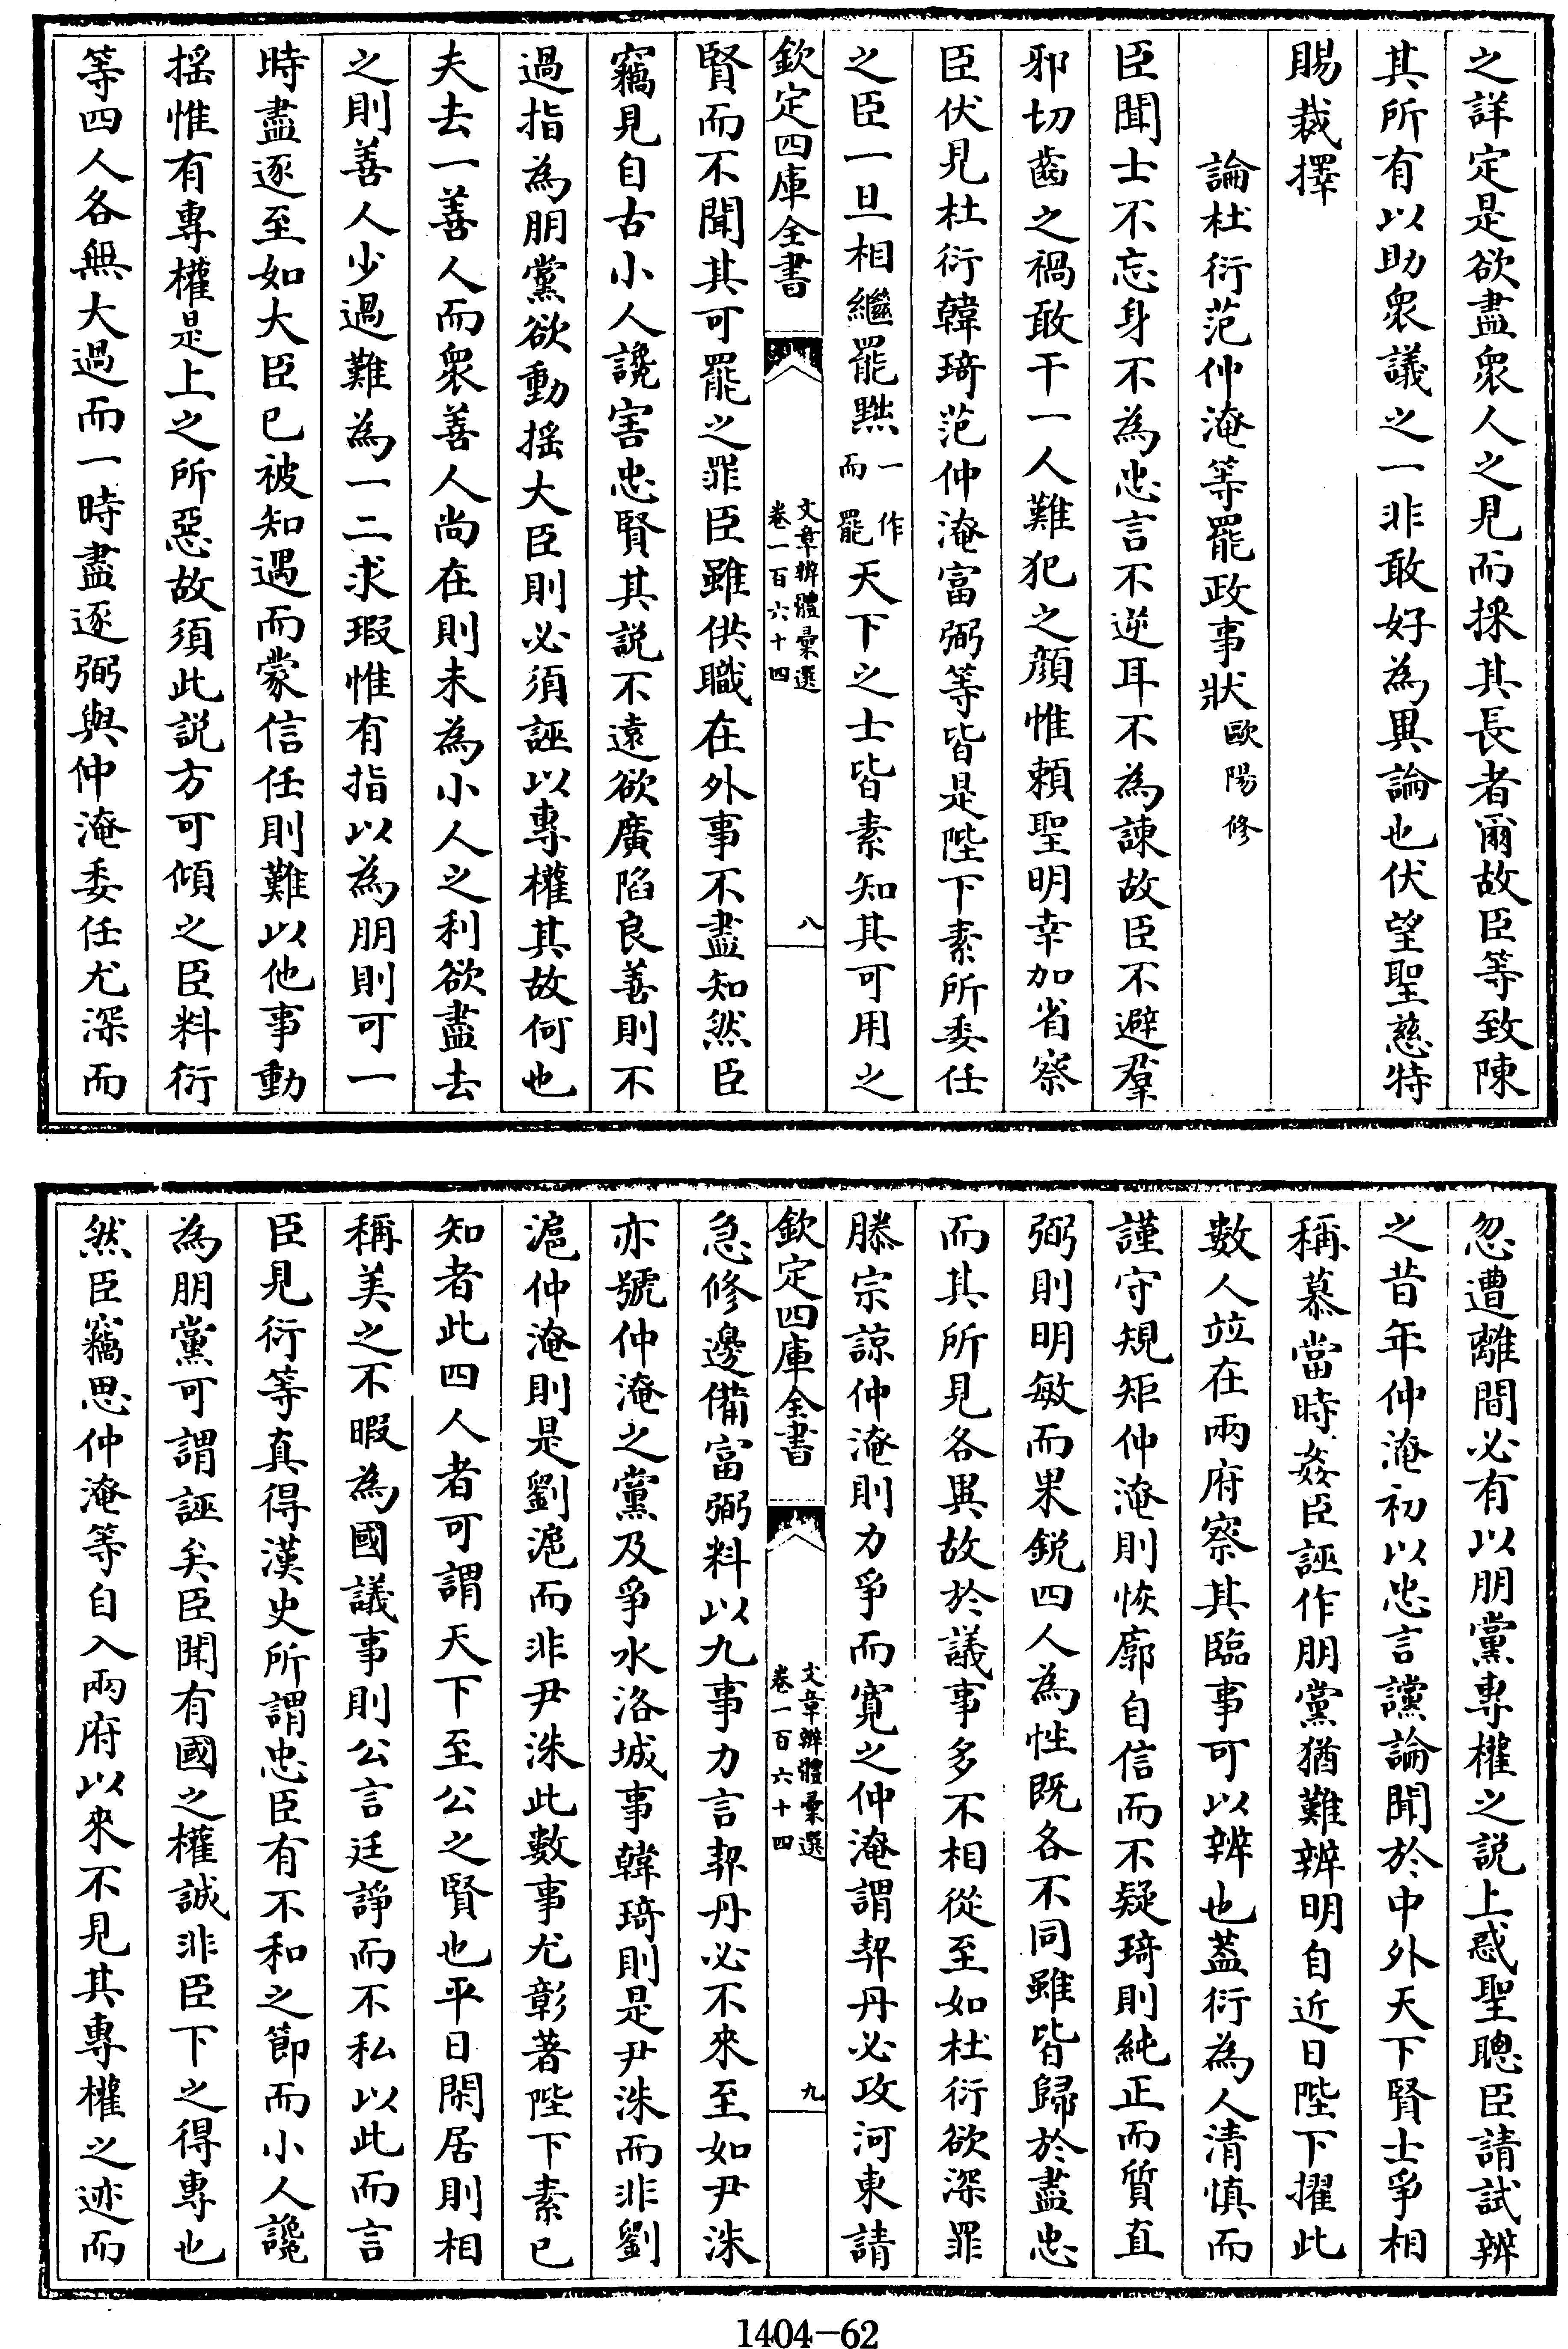 之詳定是欲盡衆人之見而採其長者爾故臣等致陳
其所有以助衆議之一非敢好為異論也伏望聖慈特
賜裁擇
論杜衍范仲淹等罷政事狀 歐陽修
臣聞士不忘身不為忠言不逆耳不為諫故臣不避羣
邪切齒之禍敢干一人難犯之顔惟賴聖明幸加省察
臣伏見杜衍韓琦范仲淹富弼等皆是陛下素所委任
之臣一旦相繼罷黜一作而罷天下之士皆素知其可用之
欽定四庫全書
文章辨體彙選
卷一百六十四
八
賢而不聞其可罷之罪臣雖供職在外事不盡知然臣
竊見自古小人讒害忠賢其説不遠欲廣陷良善則不
過指為朋黨欲動揺大臣則必須誣以專權其故何也
夫去一善人而衆善人尚在則未為小人之利欲盡去
之則善人少過難為一二求瑕惟有指以為朋則可一
時盡逐至如大臣已被知遇而蒙信任則難以他事動
揺惟有專權是上之所惡故須此説方可傾之臣料衍
等四人各無大過而一時盡逐弼與仲淹委任尤深而
忽遭離間必有以朋黨專權之説上惑聖聰臣請試辨
之昔年仲淹初以忠言讜論聞於中外天下賢士爭相
稱慕當時姦臣誣作朋黨猶難辨明自近日陛下擢此
數人竝在兩府察其臨事可以辨也葢衍為人清慎而
謹守規矩仲淹則恢廓自信而不疑琦則純正而質直
弼則明敏而果鋭四人為性既各不同雖皆歸於盡忠
而其所見各異故於議事多不相從至如杜衍欲深罪
滕宗諒仲淹則力爭而寬之仲淹謂契丹必攻河東請
欽定四庫全書
文章辨體彙選
卷一百六十四
九
急修邊備富弼料以九事力言契丹必不來至如尹洙
亦號仲淹之黨及爭水洛城事韓琦則是尹洙而非劉
滬仲淹則是劉滬而非尹洙此數事尤彰著陛下素已
知者此四人者可謂天下至公之賢也平日閑居則相
稱美之不暇為國議事則公言廷諍而不私以此而言
臣見衍等真得漢史所謂忠臣有不和之節而小人讒
為朋黨可謂誣矣臣聞有國之權誠非臣下之得專也
然臣竊思仲淹等自入兩府以來不見其專權之迹而
1404—62